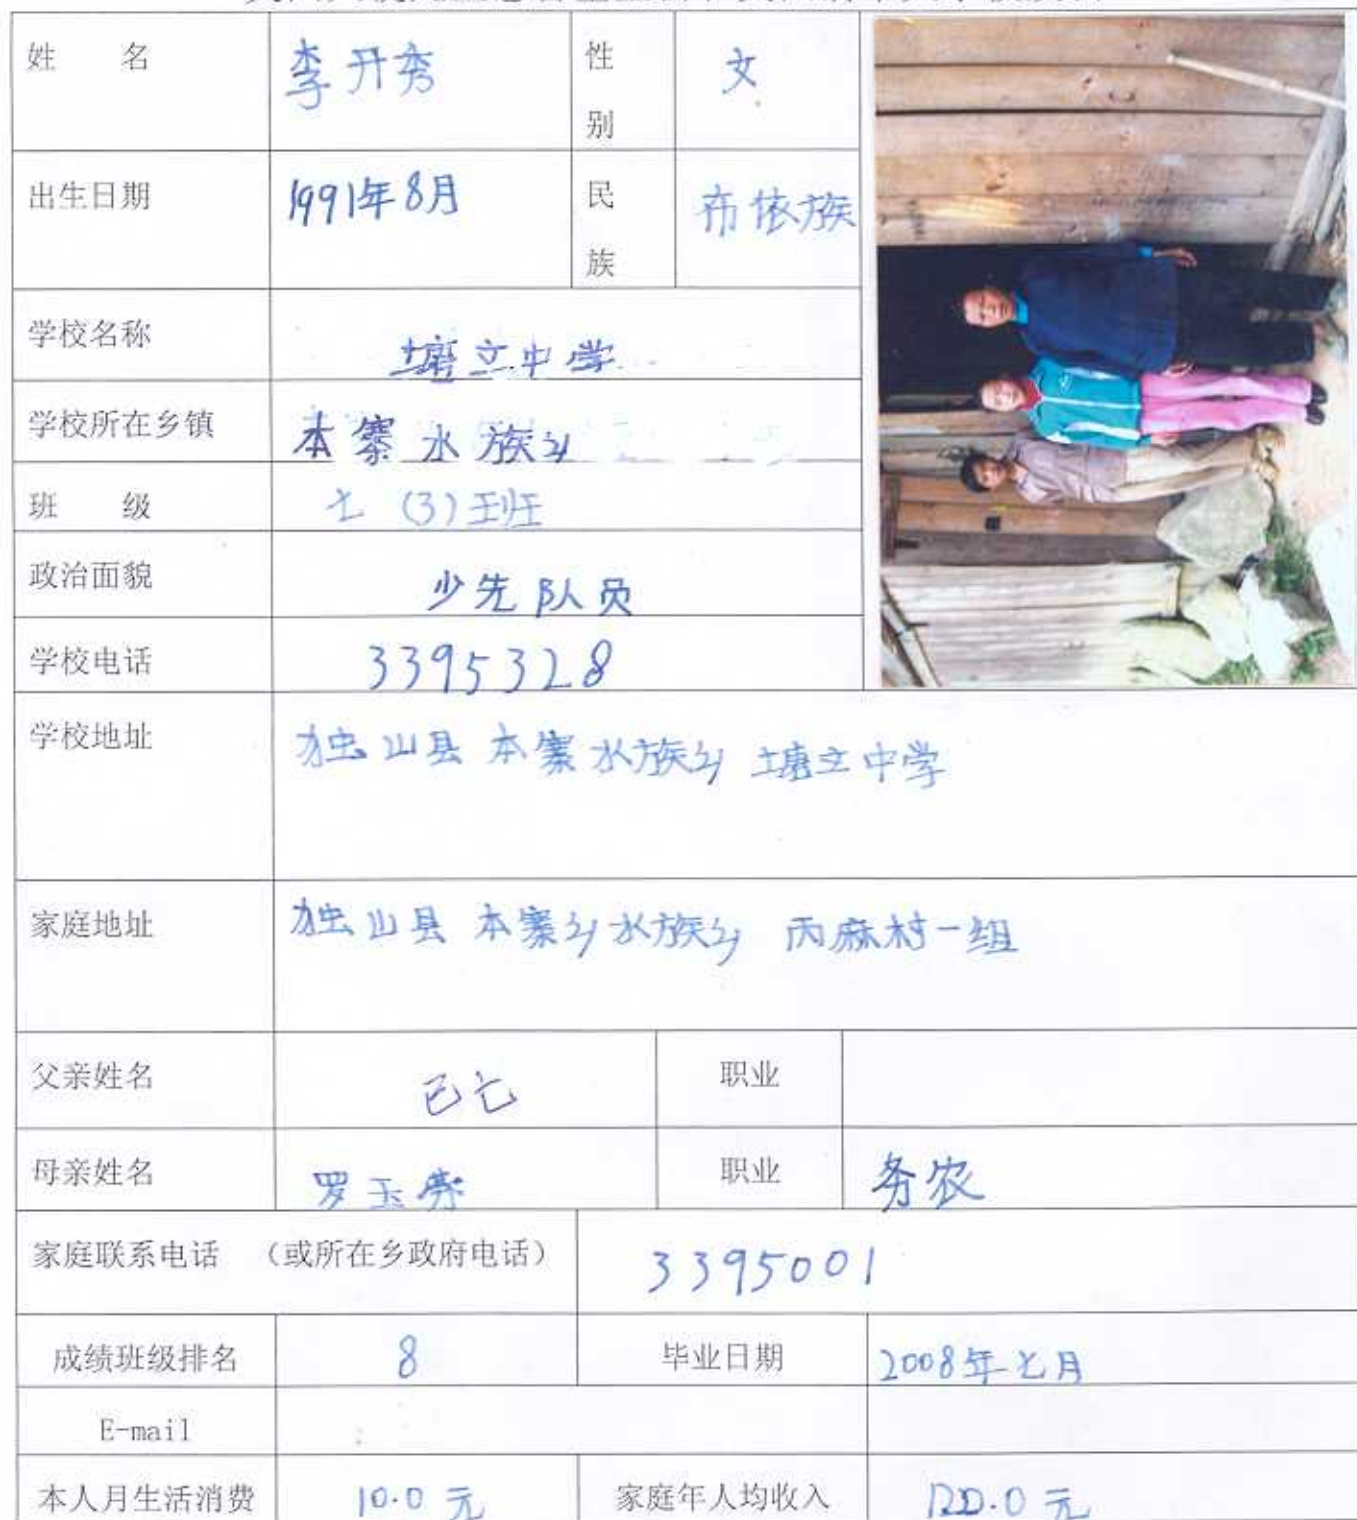 姓 名 李开秀 性别 女
出生日期 1991年8月 民族 布依族
学校名称 塘立中学
学校所在乡镇 本寨水族乡
班 级 七(3)班
政治面貌 少先队员
学校电话 3395328
学校地址 独山县本寨水族乡塘立中学
家庭地址 独山县本寨乡水族乡丙麻村一组
父亲姓名 已亡 职业
母亲姓名 罗玉 职业 务农
家庭联系电话 (或所在乡政府电话) 3395001
成绩班级排名 8 毕业日期 2008年七月
E-mail
本人月生活消费 10.0元 家庭年人均收入 元